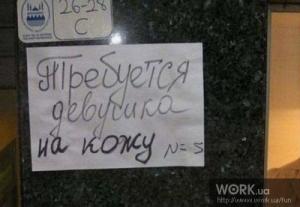 26-28
С
Требуется
девушка
на кожу N=5
WORK.ua
http://www.work.ua/fun